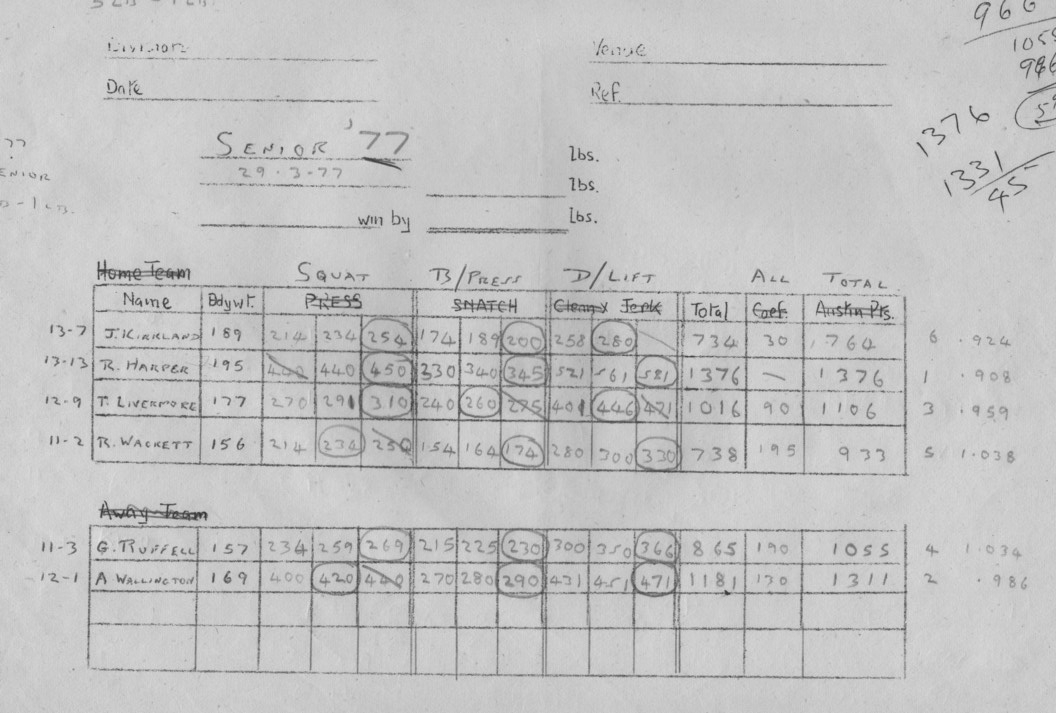 966
Division Venue 1055
966
Date Ref.
1376
SENIOR '77 lbs. 1331
29.3.77 lbs. 45
win by lbs.
Home Team SQUAT B/PRESS D/LIFT ALL TOTAL
Name Bdywt. PRESS SNATCH Clean x Jerk Total Coef. Austin Pts.
13-7 J. KIRKLAND 189 214 234 254 174 189 200 258 280 734 30 764 6 .924
13-13 R. HARPER 195 400 440 450 330 340 345 521 561 581 1376 — 1376 1 .908
12-9 T. LIVERMORE 177 270 291 310 240 260 275 401 446 471 1016 90 1106 3 .959
11-2 R. WACKETT 156 214 234 250 154 164 174 280 300 330 738 195 933 5 1.038
Away Team
11-3 G. RUFFELL 157 234 259 269 215 225 230 300 350 366 865 190 1055 4 1.034
12-1 A WALLINGTON 169 400 420 440 270 280 290 431 451 471 1181 130 1311 2 .986